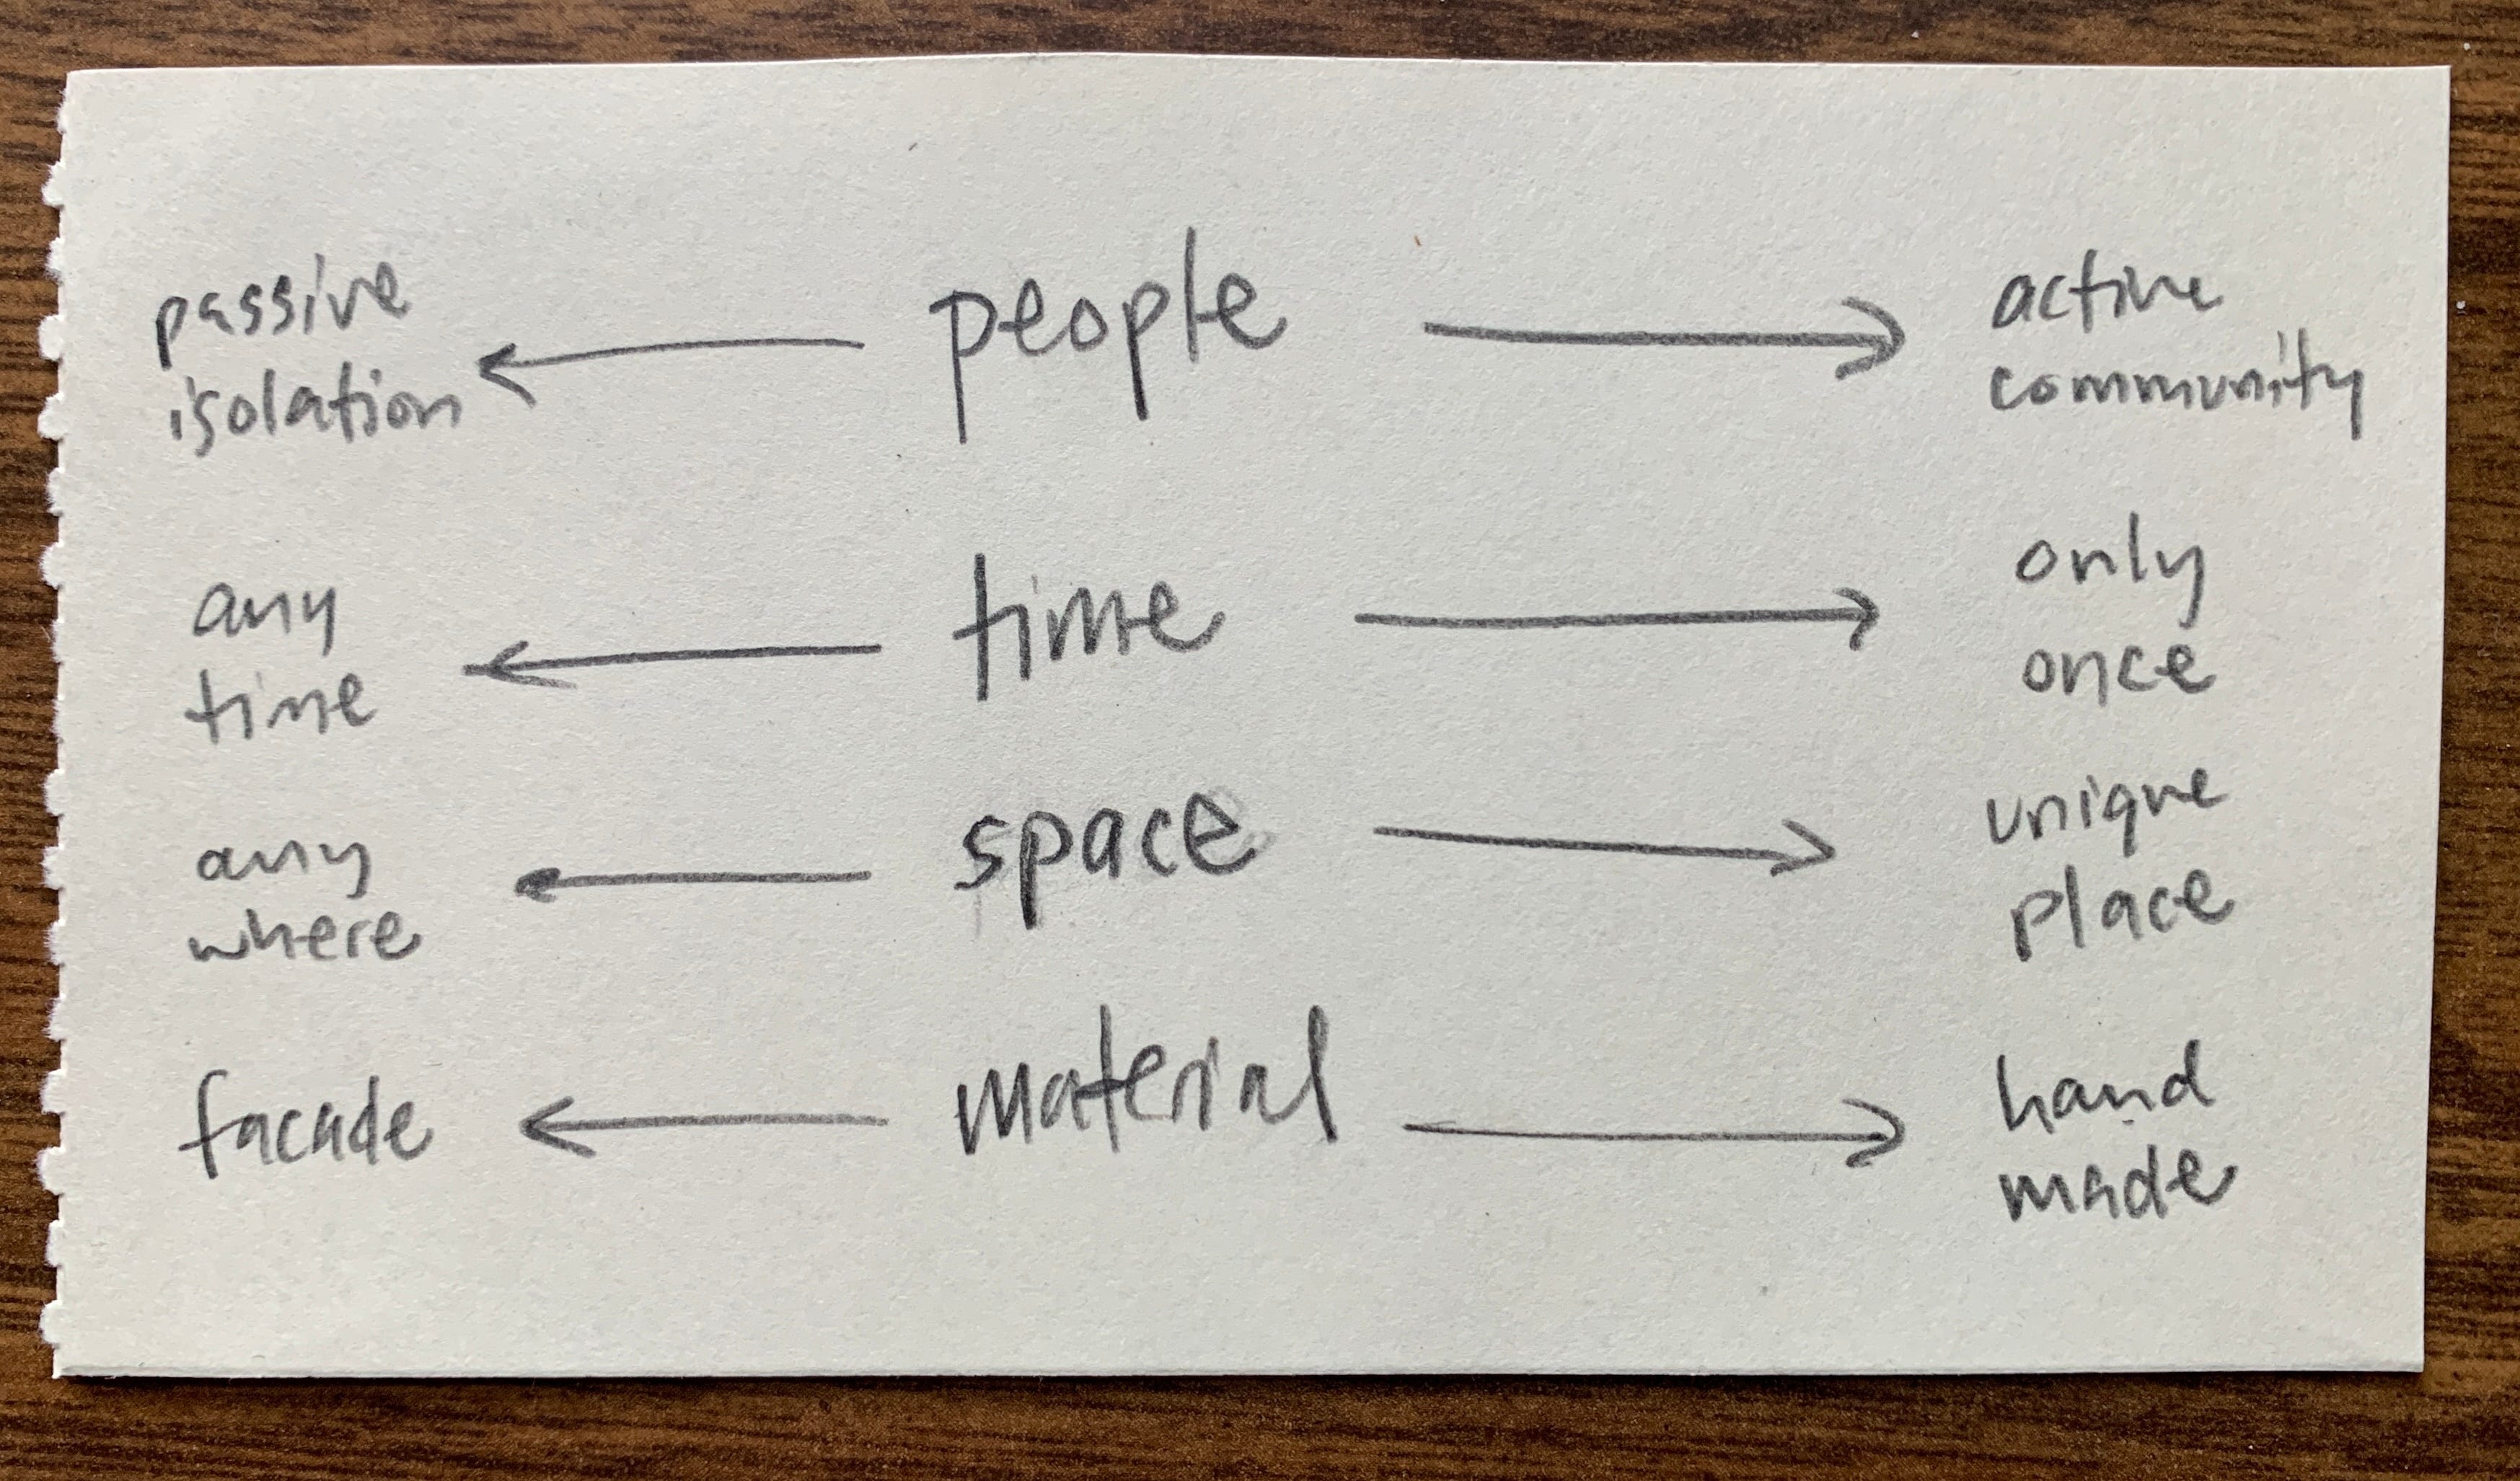 passive
isolation
people
active
community
any
time
time
only
once
any
where
space
unique
place
facade
material
hand
made